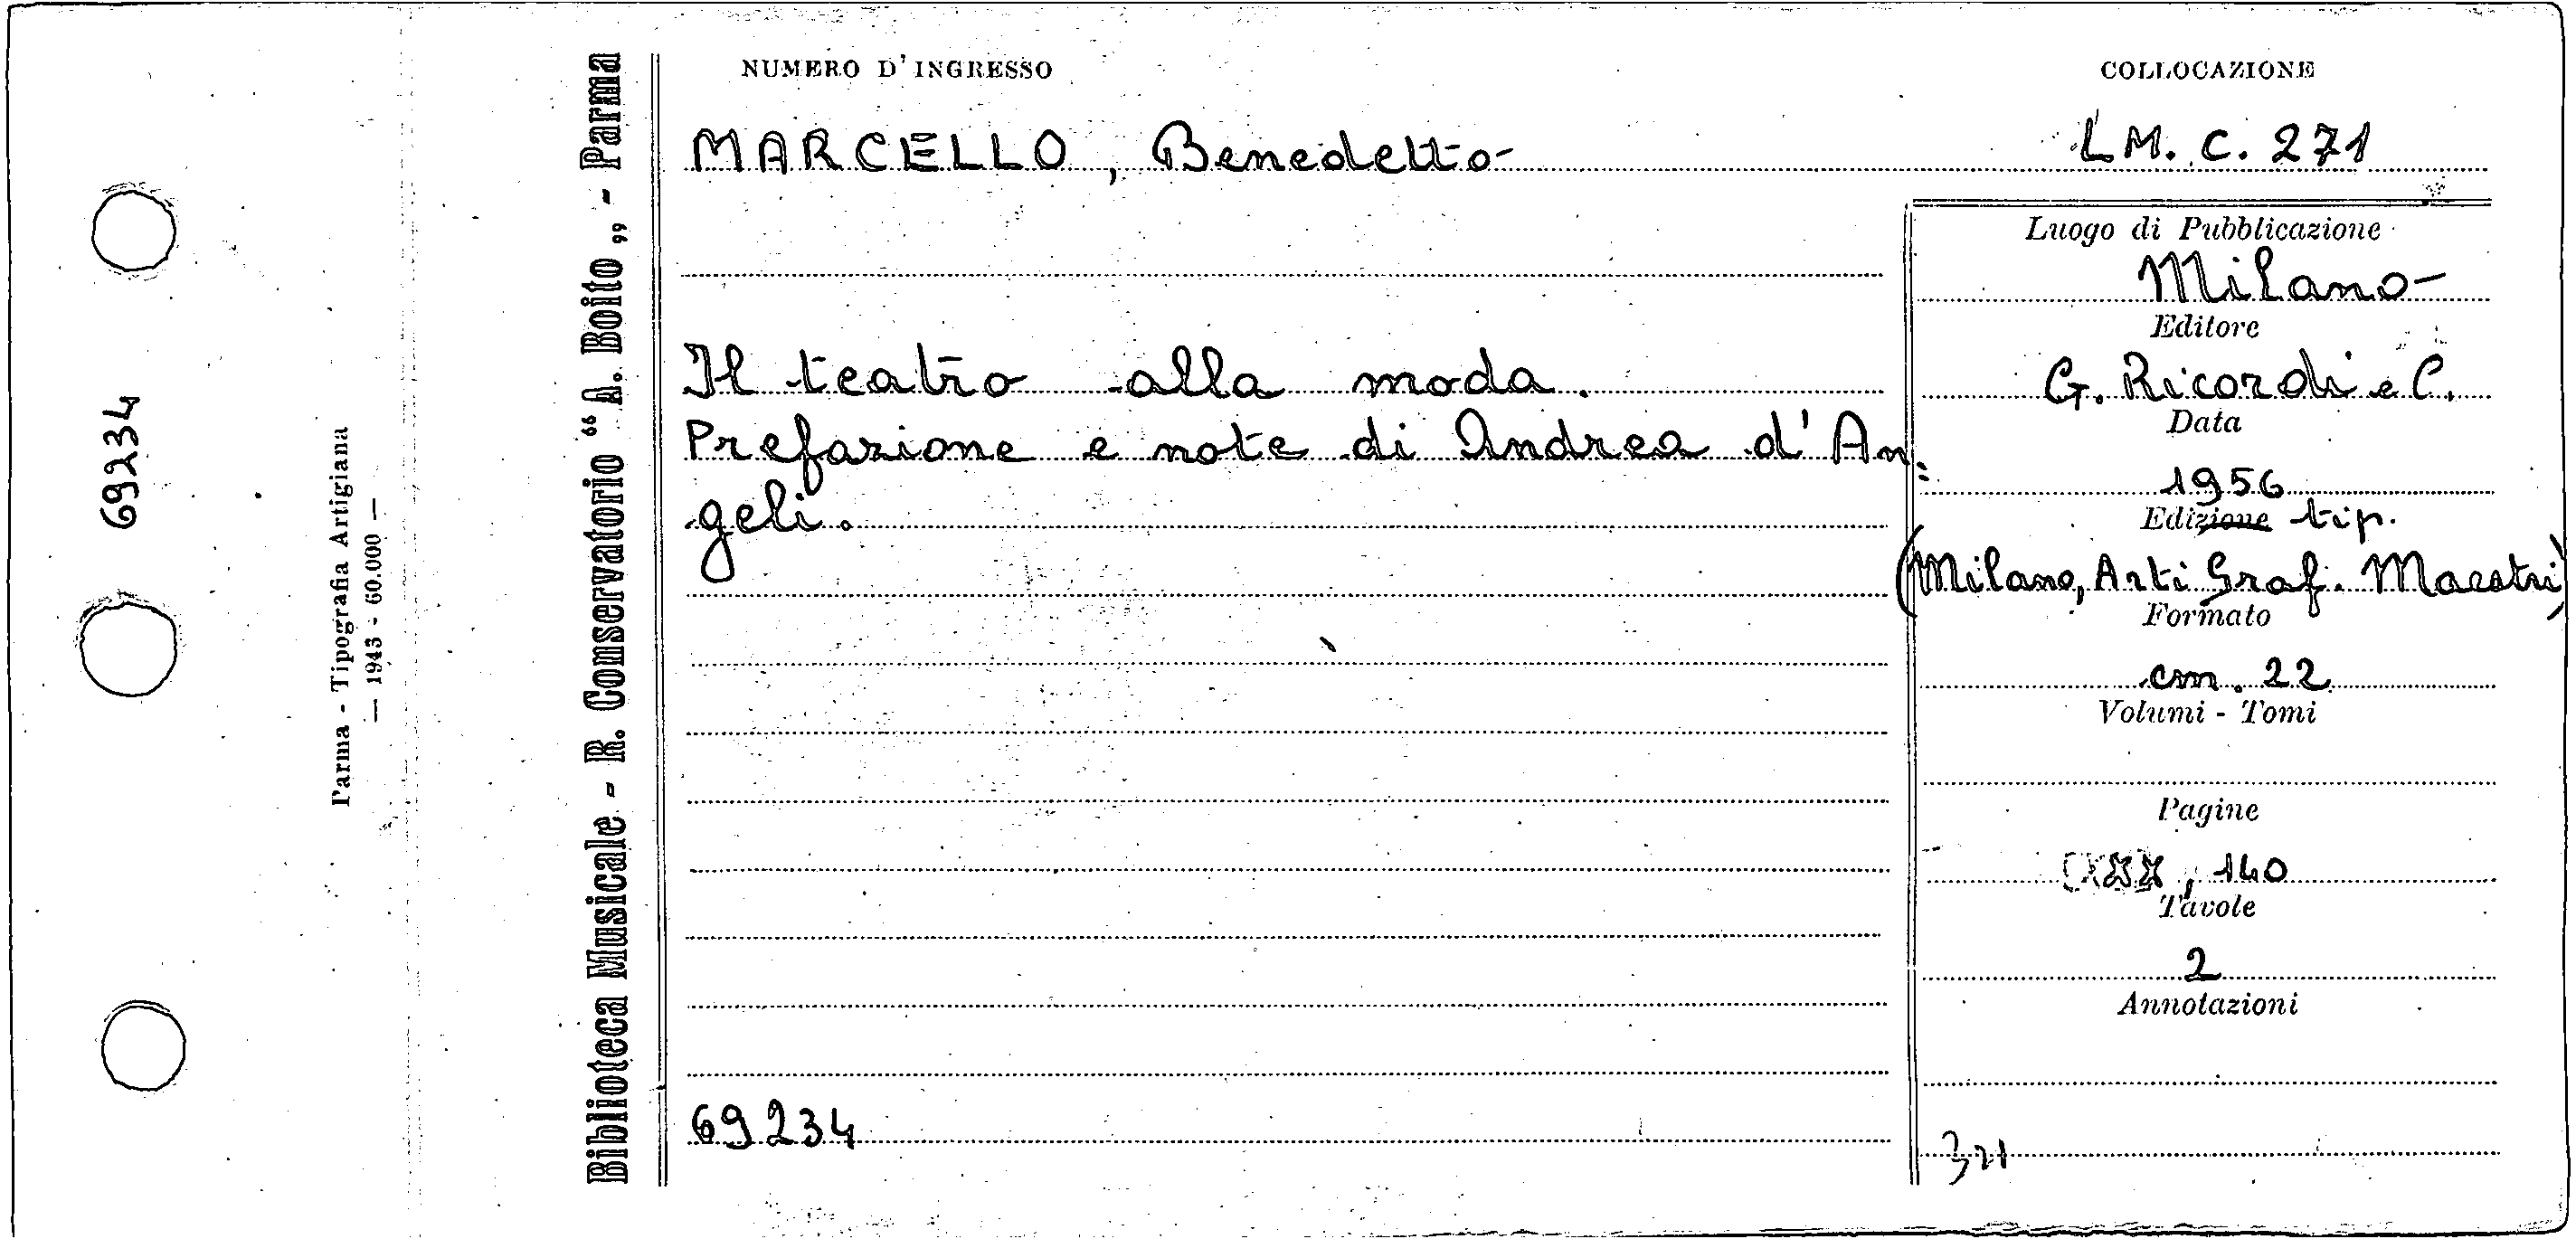 69234
Parma - Tipografia Artigiana
— 1943 - 60.000 —
Biblioteca Musicale - R. Conservatorio “A. Boito„ - Parma
NUMERO D'INGRESSO
COLLOCAZIONE
MARCELLO, Benedetto-
LM. C. 271
Il teatro alla moda.
Prefazione e note di Andrea d'An=
geli.
69234
Luogo di Pubblicazione
Milano-
Editore
G. Ricordi e C.
Data
1956
Edizione tip.
(Milano, Arti Graf. Maestri)
Formato
cm. 22
Volumi - Tomi
Pagine
XXX, 140
Tavole
2
Annotazioni
321